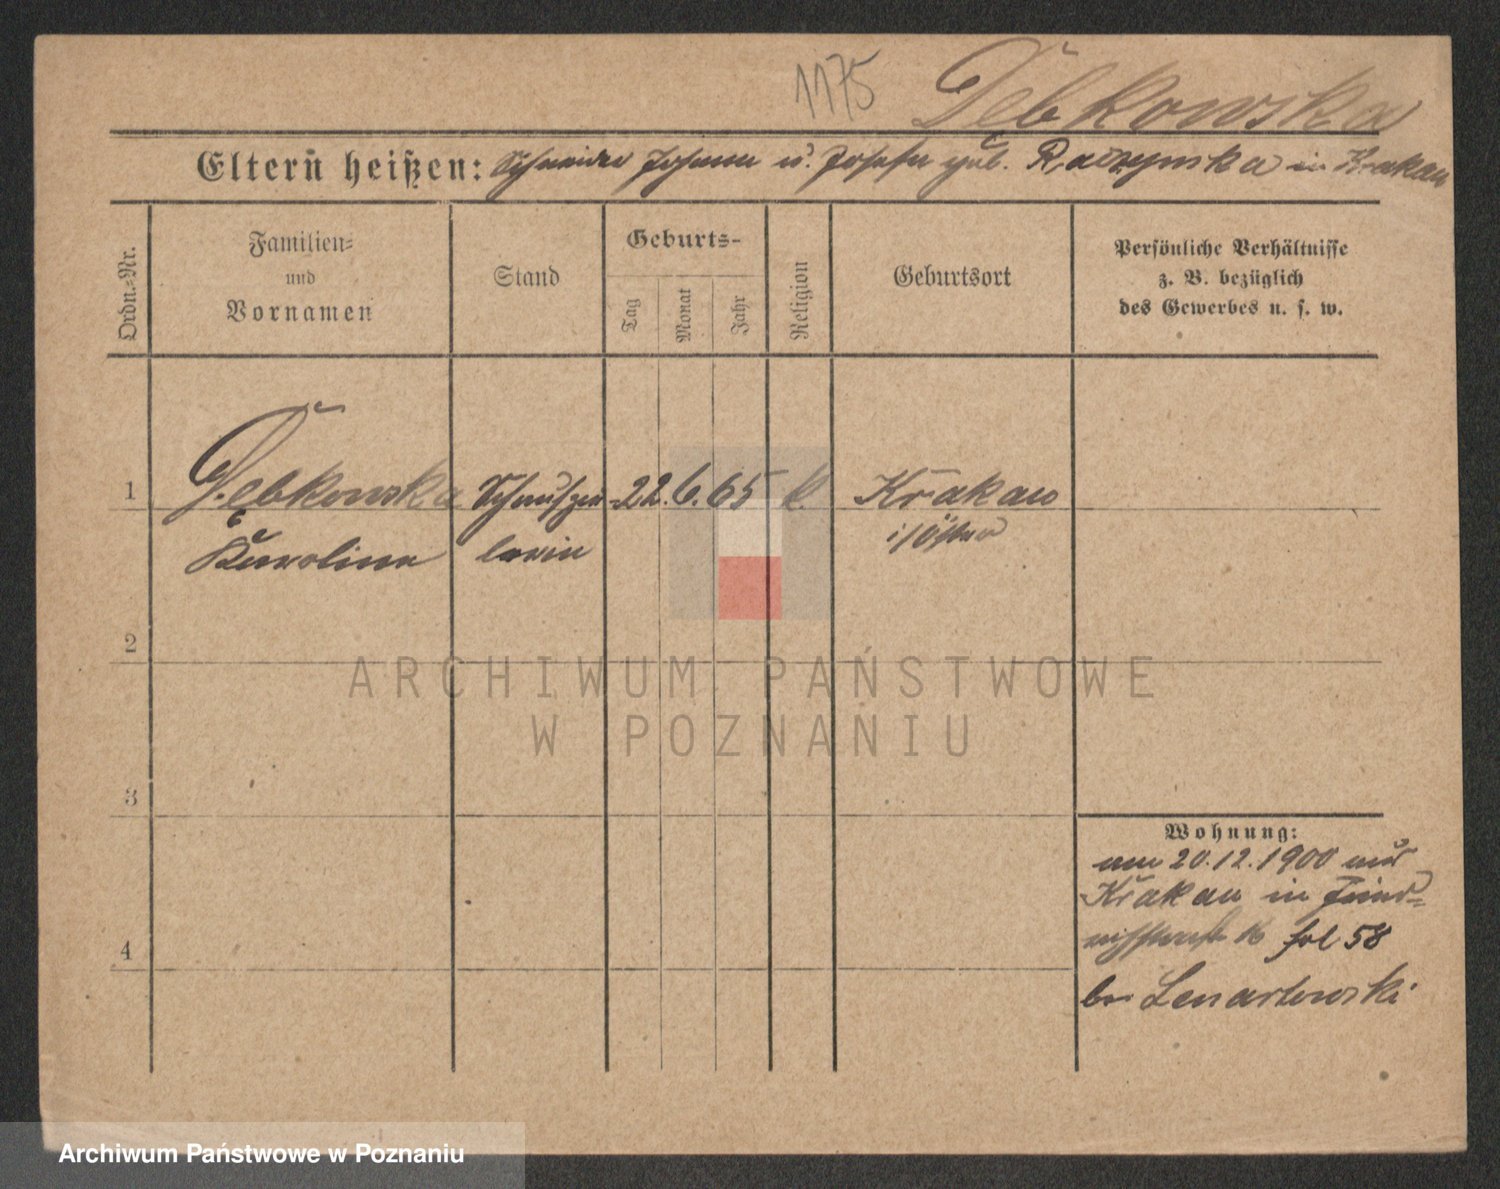 1175 Dębkowska
Eltern heißen: Schneider Johann u. Josefa geb. Raczynska in Krakau
Ordn.-Nr.
Familien-
und
Vornamen
Stand
Geburts-
Tag
Monat
Jahr
Religion
Geburtsort
Persönliche Verhältnisse
z. B. bezüglich
des Gewerbes u. s. w.
1 Dębkowska Schauspie- 22. 6. 65 k. Krakau
Karoline lerin i/Öster
2
ARCHIWUM PAŃSTWOWE
W POZNANIU
3
Wohnung:
am 20.12.1900 aus
Krakau in
58
4
bei Lenartowski
Archiwum Państwowe w Poznaniu